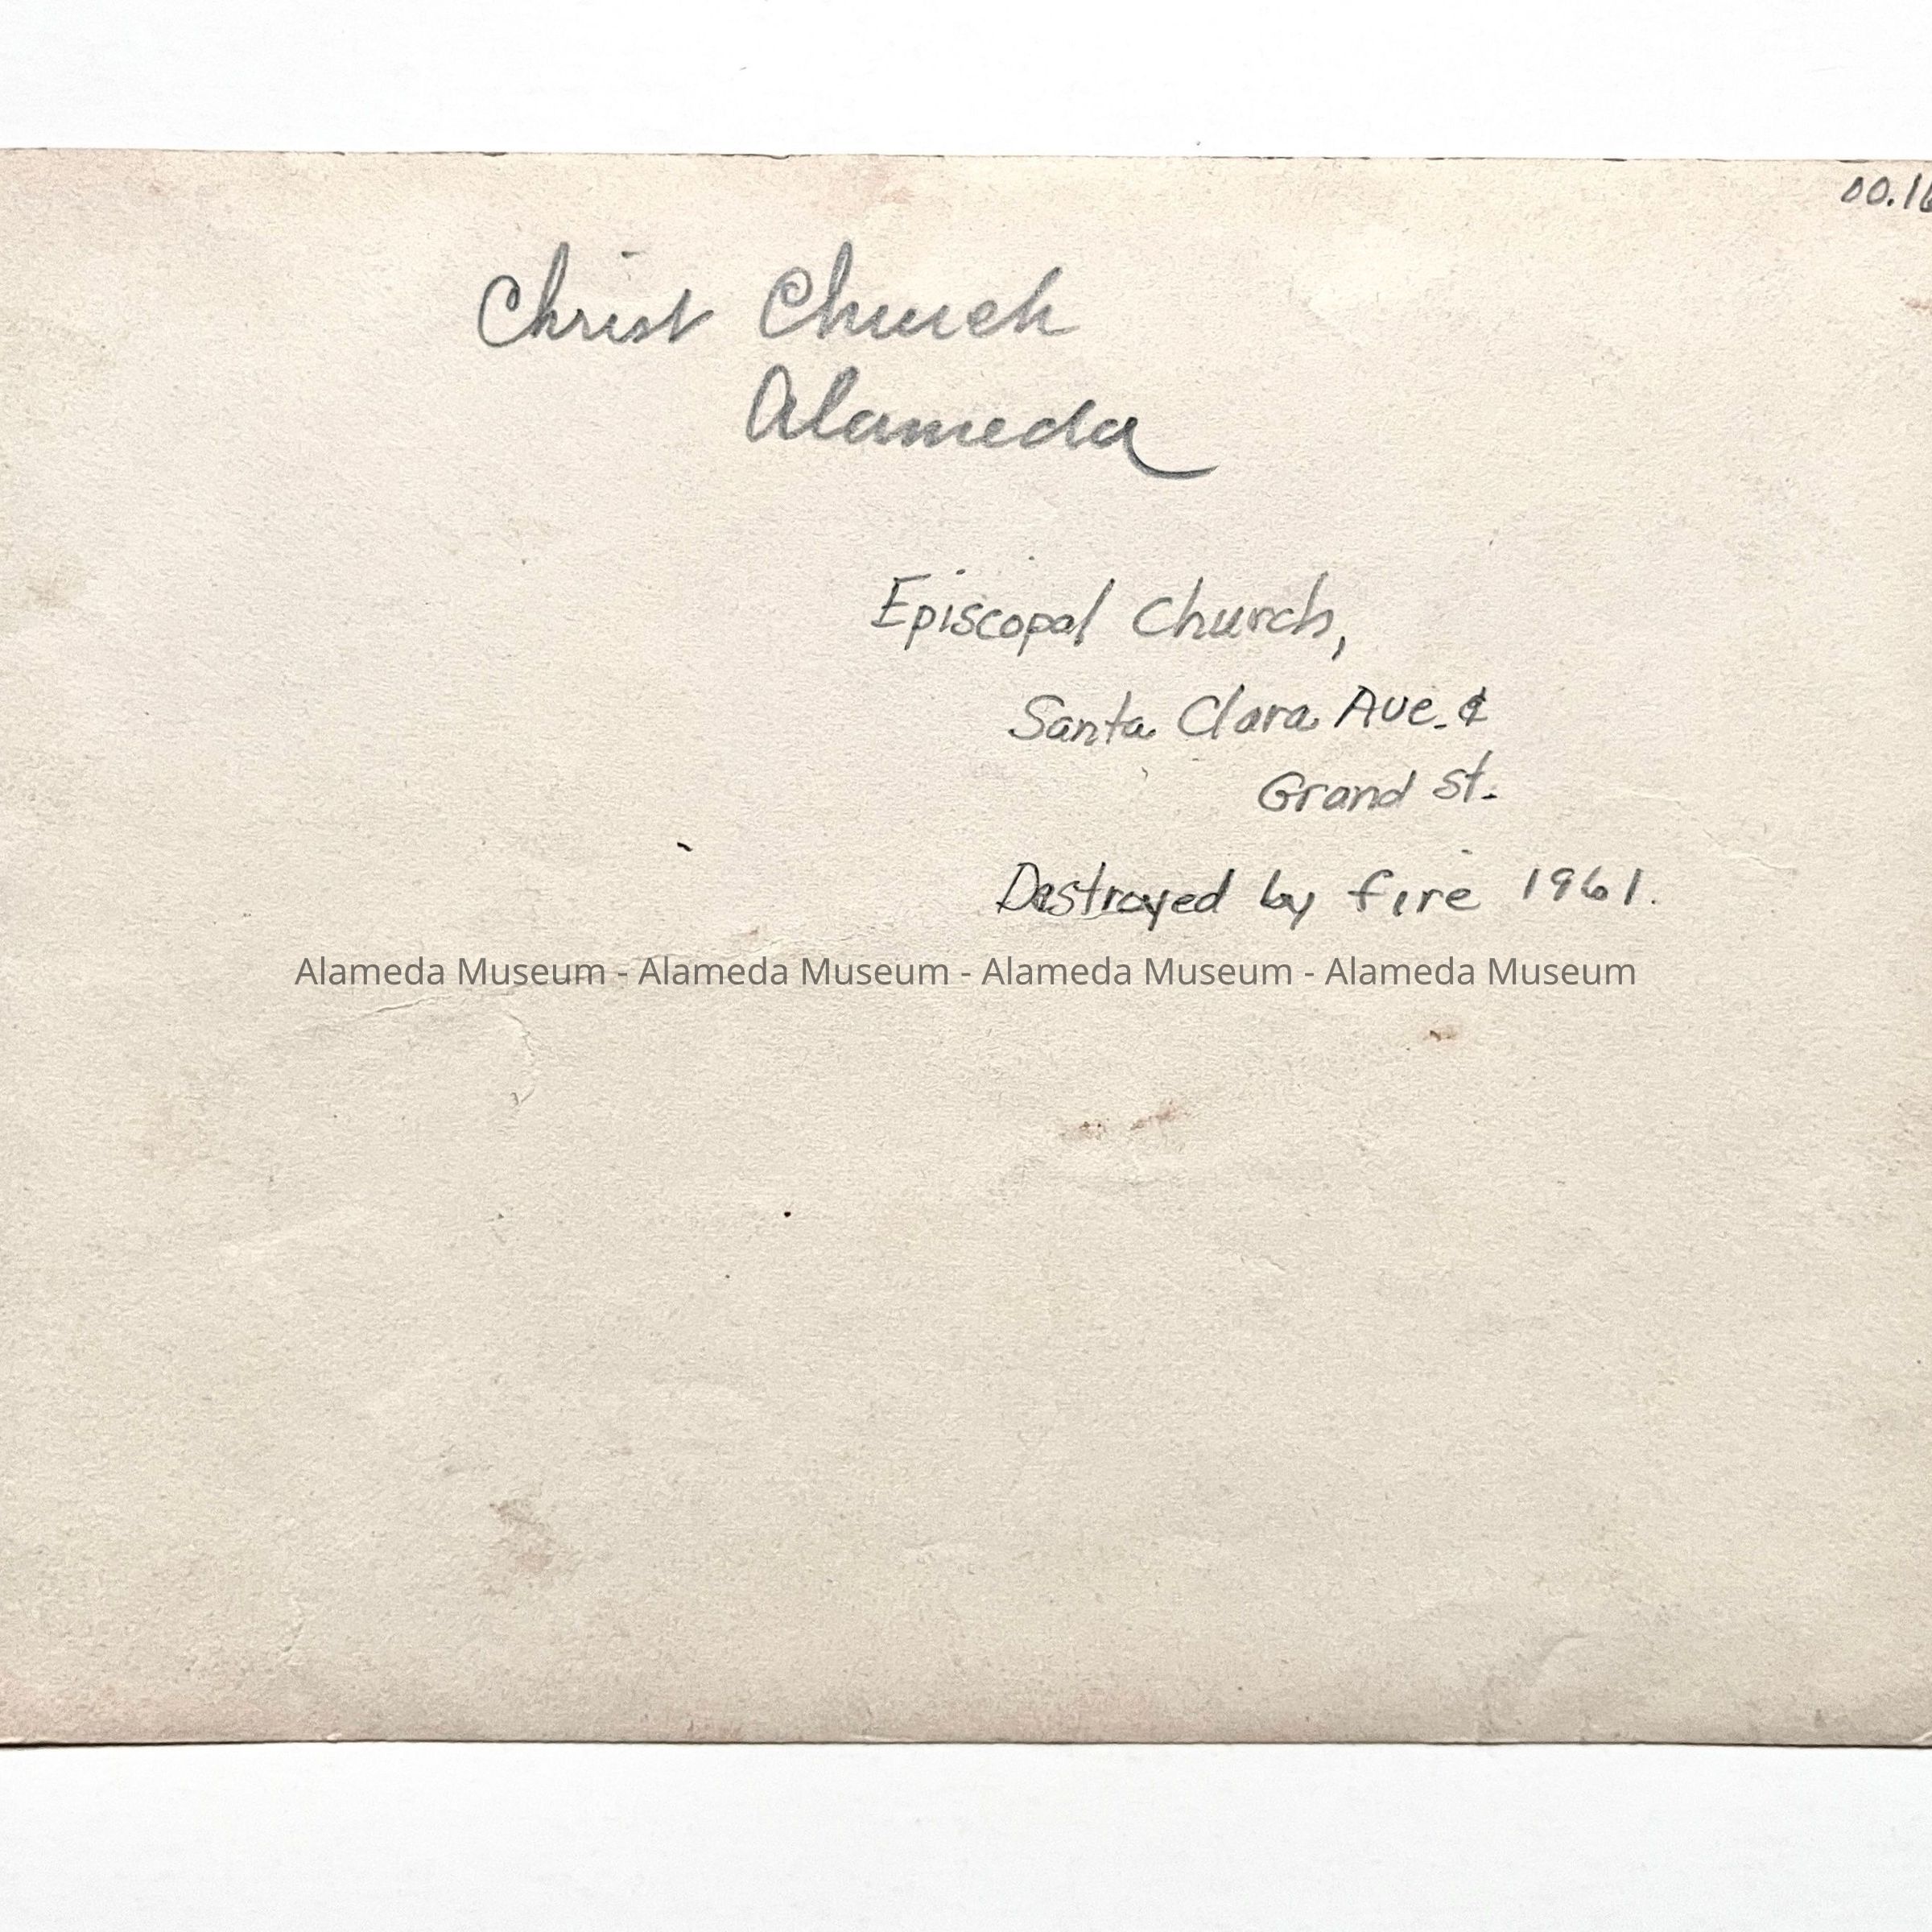 00.16
Christ Church
Alameda
Episcopal Church,
Santa Clara Ave. &
Grand St.
Destroyed by fire 1961.
Alameda Museum - Alameda Museum - Alameda Museum - Alameda Museum